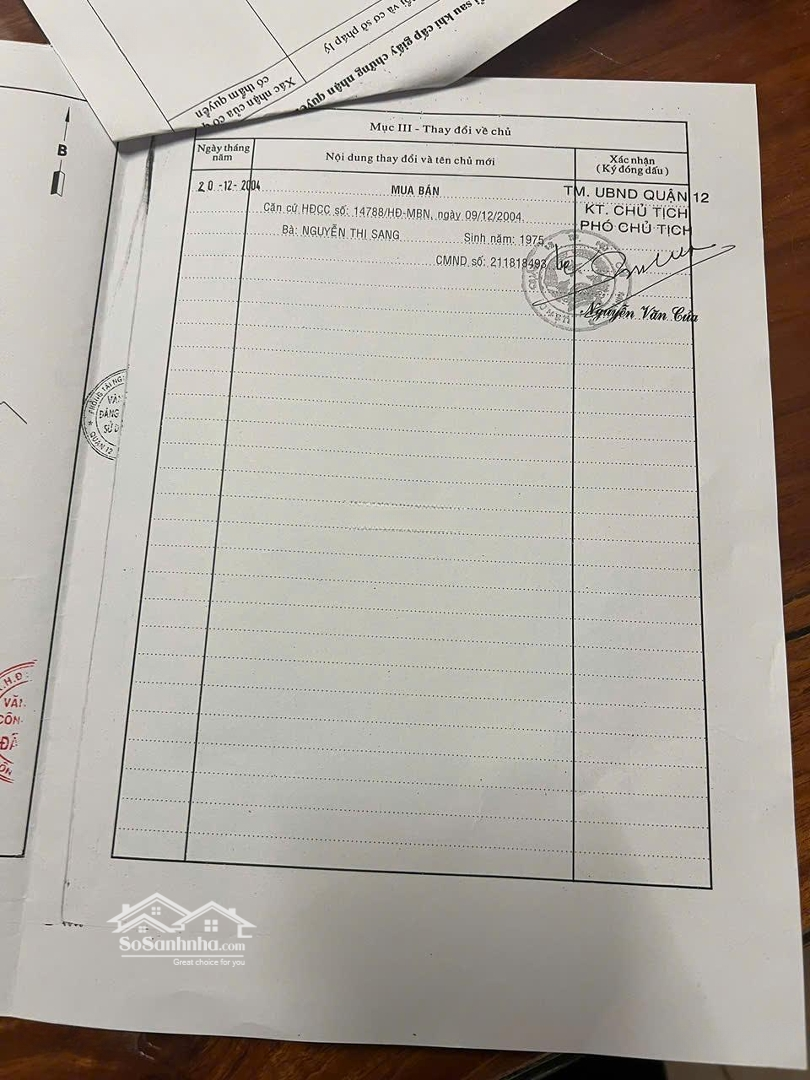 ổi và cơ sở pháp lý
ổi sau khi cấp giấy chứng nhận quyền
Xác nhận của cơ q
có thẩm quyền
B
Mục III - Thay đổi về chủ
Ngày tháng năm
Nội dung thay đổi và tên chủ mới
Xác nhận
(Ký đóng dấu)
20-12-2004
MUA BÁN
TM. UBND QUẬN 12
Căn cứ HĐCC số: 14788/HĐ-MBN, ngày 09/12/2004
KT. CHỦ TỊCH
Bà: NGUYỄN THỊ SANG Sinh năm: 1975
PHÓ CHỦ TỊCH
CMND số: 211818493
Nguyễn Văn Cứa
PHÒNG TÀI NG
VĂ
ĐĂNG
SỬ D
QUẬN 12
.H.Đ
VĂ
CÔN
SoSanhnha.com
Great choice for you